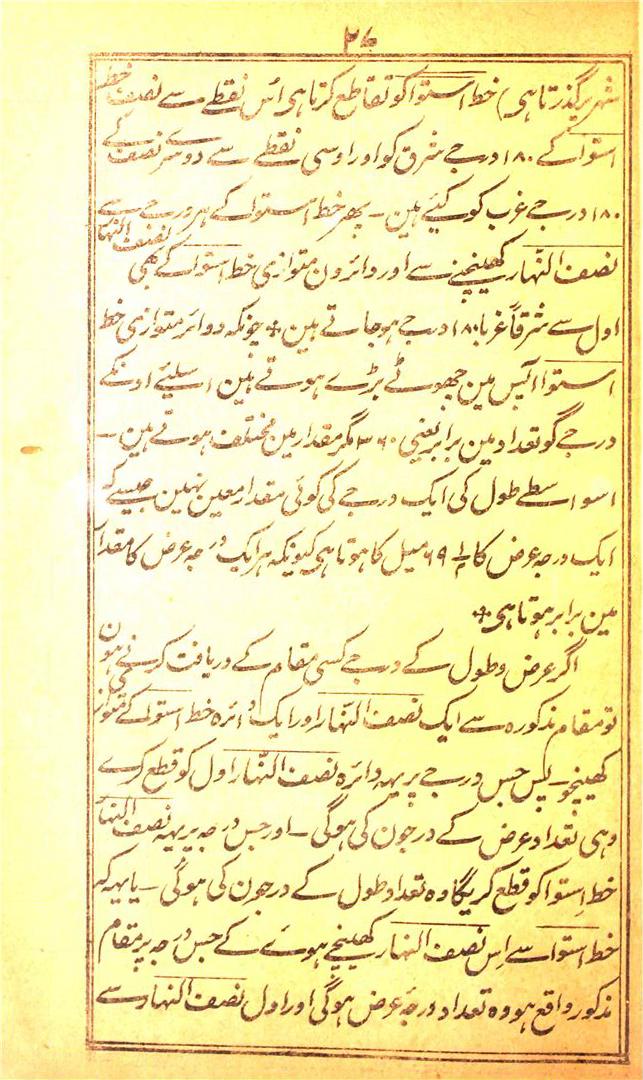 ۲۷
شہر پر گذرتا ہی) خط استوا کو تقاطع کرتا ہی اُس نقطے سے نصف خط
استوا کے ۱۸۰ درجے شرق کو اور اوسی نقطے سے دوسرے نصف کے
۱۸۰ درجے غرب کو کیئے ہین ۔ پھر خط استوا کے ہر درجے سے
نصف النّہار کھینچنے سے اور دائرون متوازی خط استوا کے بھی نصف النہار
اول سے شرقاً غربا ۱۸۰ درجے ہو جاتے ہین + چونکہ دوائر متوازی خط
استوا آپس مین چھوٹے بڑے ہوتے ہین اسلیئے اونکے
درجے گو تعداد مین برابر یعنی ۳۶۰ مگر مقدار مین مختلف ہوتے ہین ۔
اسواسطے طول کی ایک درجے کی کوئی مقدار معین نہین جیسے کہ
ایک درجہ عرض کا ۶۹ میل کا ہوتا ہی کیونکہ ہر ایک درجہ عرض کا مقدار
مین برابر ہوتا ہی +
اگر عرض و طول کے درجے کسی مقام کے دریافت کرنے ہون
تو مقام مذکورہ سے ایک نصف النّہار اور ایک دائرہ خط استوا کے متوازی
کھینچو ۔ پس جس درجے پر یہہ دائرہ نصف النّہار اول کو قطع کرے
وہی تعداد عرض کے درجون کی ہوگی ۔ اور جس درجہ پر یہہ نصف النہار
خط اِستوا کو قطع کریگا وہ تعداد طول کے درجون کی ہوگی ۔ یا یہہ کہ
خط استوا سے اِس نصف النہار کھینچے ہوئے کے جس درجہ پر مقام
مذکور واقع ہو وہ تعداد درجۂ عرض ہوگی اور اول نصف النہار سے